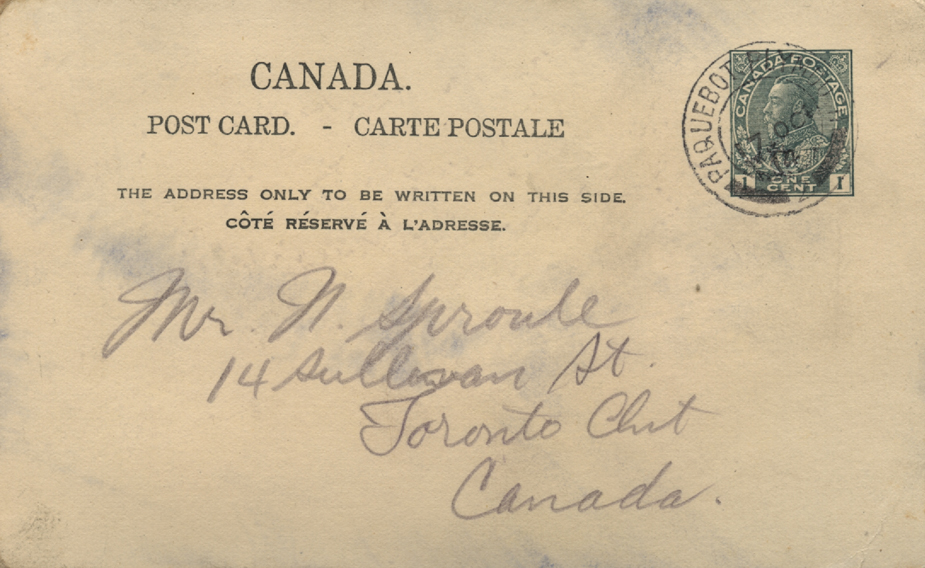 CANADA.
POST CARD. - CARTE POSTALE
THE ADDRESS ONLY TO BE WRITTEN ON THIS SIDE.
CÔTÉ RÉSERVÉ À L'ADRESSE.
CANADA POSTAGE
1 ONE CENT 1
PAQUEBOT
7 OC
Mr. N. Sproule
14 Sullivan St.
Toronto Ont
Canada.